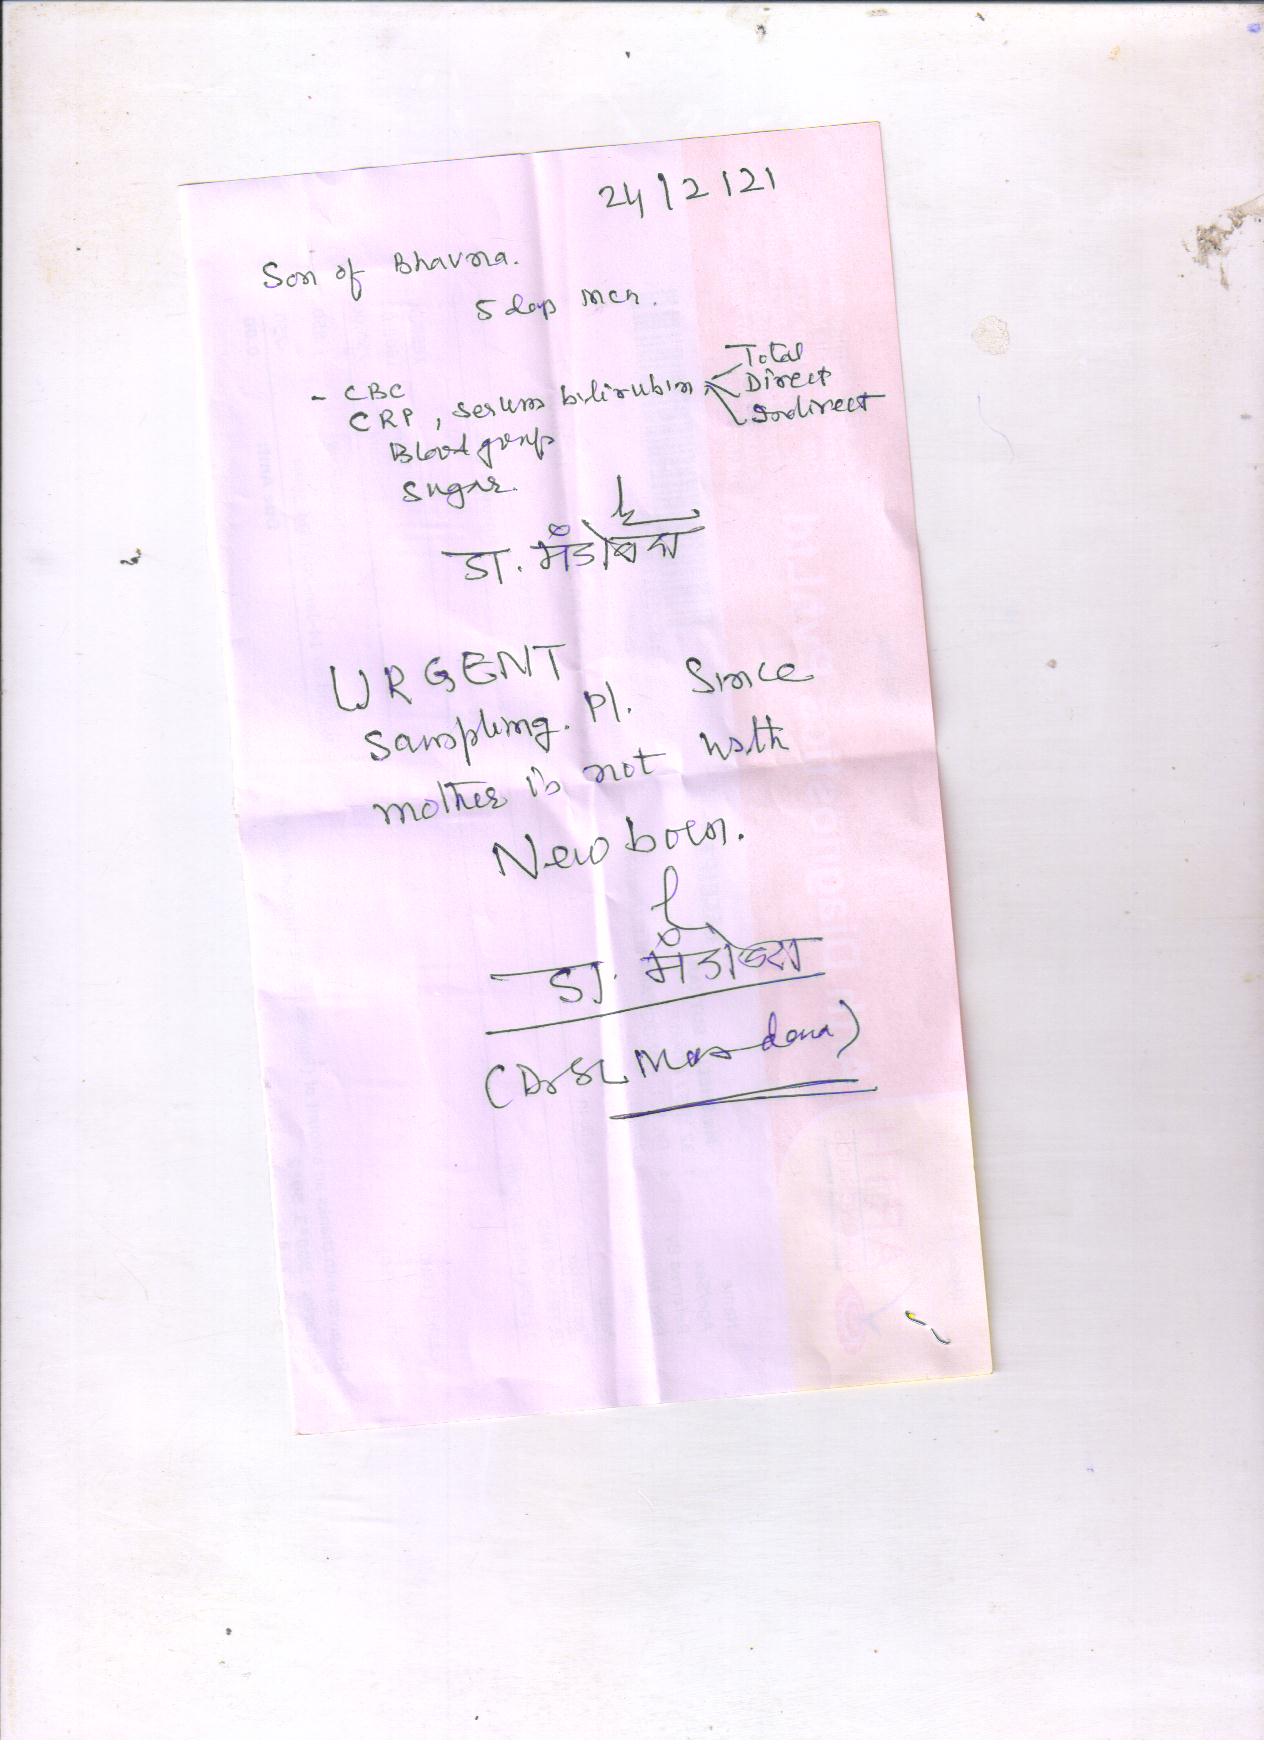 24/2/21
Son of Bhavna.
5 days
- CBC
CRP, serum bilirubin Total
Direct
Indirect
Blood group
Sugar.
डा. मंडोवरा
URGENT
Sampling. Pl. Since
mother is not with
New born.
डा. मंडोवरा
(Dr SL Mandora)